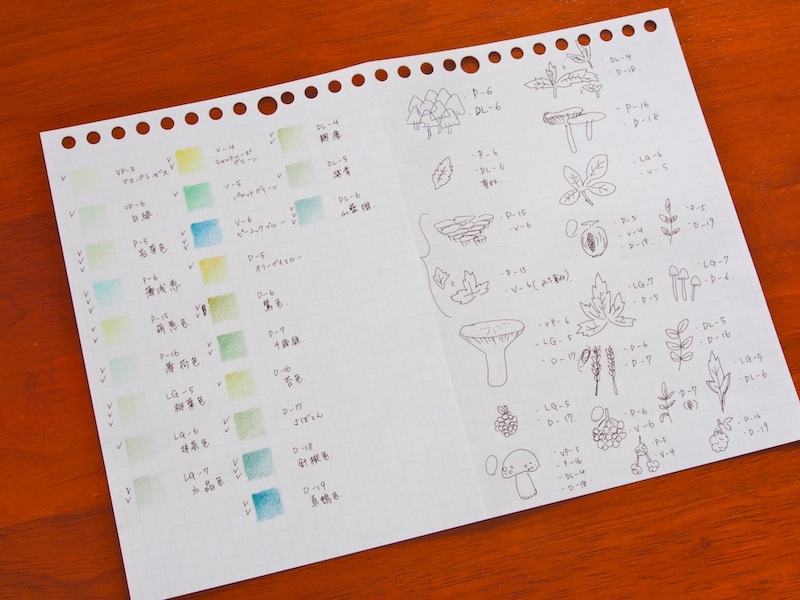 VP-5
アスパラガス
VP-6
白緑
P-5
若葉色
P-6
薄浅葱
P-15
萌葱色
P-16
薄荷色
LG-5
柳葉色
LG-6
抹茶色
LG-7
水晶色
V-4
シャルトルーズ
グリーン
V-5
パロットグリーン
V-6
ピーコックブルー
D-5
オリーブイエロー
D-6
鶯色
D-7
千歳緑
D-16
苔色
D-17
さぼてん
D-18
針槐色
D-19
真鴨色
DL-4
DL-5
DL-6
山藍摺
・P-6
・DL-6
・P-6
・DL-6
重ね
・P-15
・V-6
・P-15
・V-6
・VP-6
・LG-5
・D-17
・LG-5
・D-17
・VP-5
・P-16
・DL-4
・D-18
・DL-4
・D-18
・P-16
・D-18
・LG-6
・V-5
・P-5
・V-4
・D-19
・P-5
・D-19
・LG-7
・D-5
・LG-7
・D-6
・D-6
・D-7
・DL-5
・D-16
・P-6
・V-6
・D-7
・LG-5
・DL-6
・P-5
・V-4
・P-16
・D-19